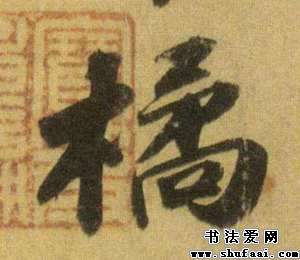 橘
书法爱网
www.shufaai.com